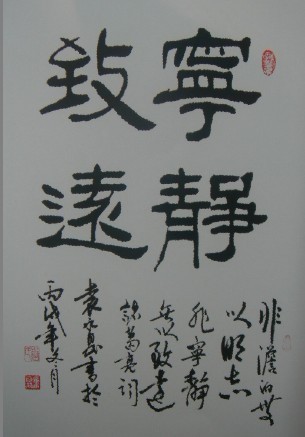 寧靜
致遠
非澹泊無
以明志
非寧靜
無以致遠
諸葛亮詞
袁書於
丙戌年月